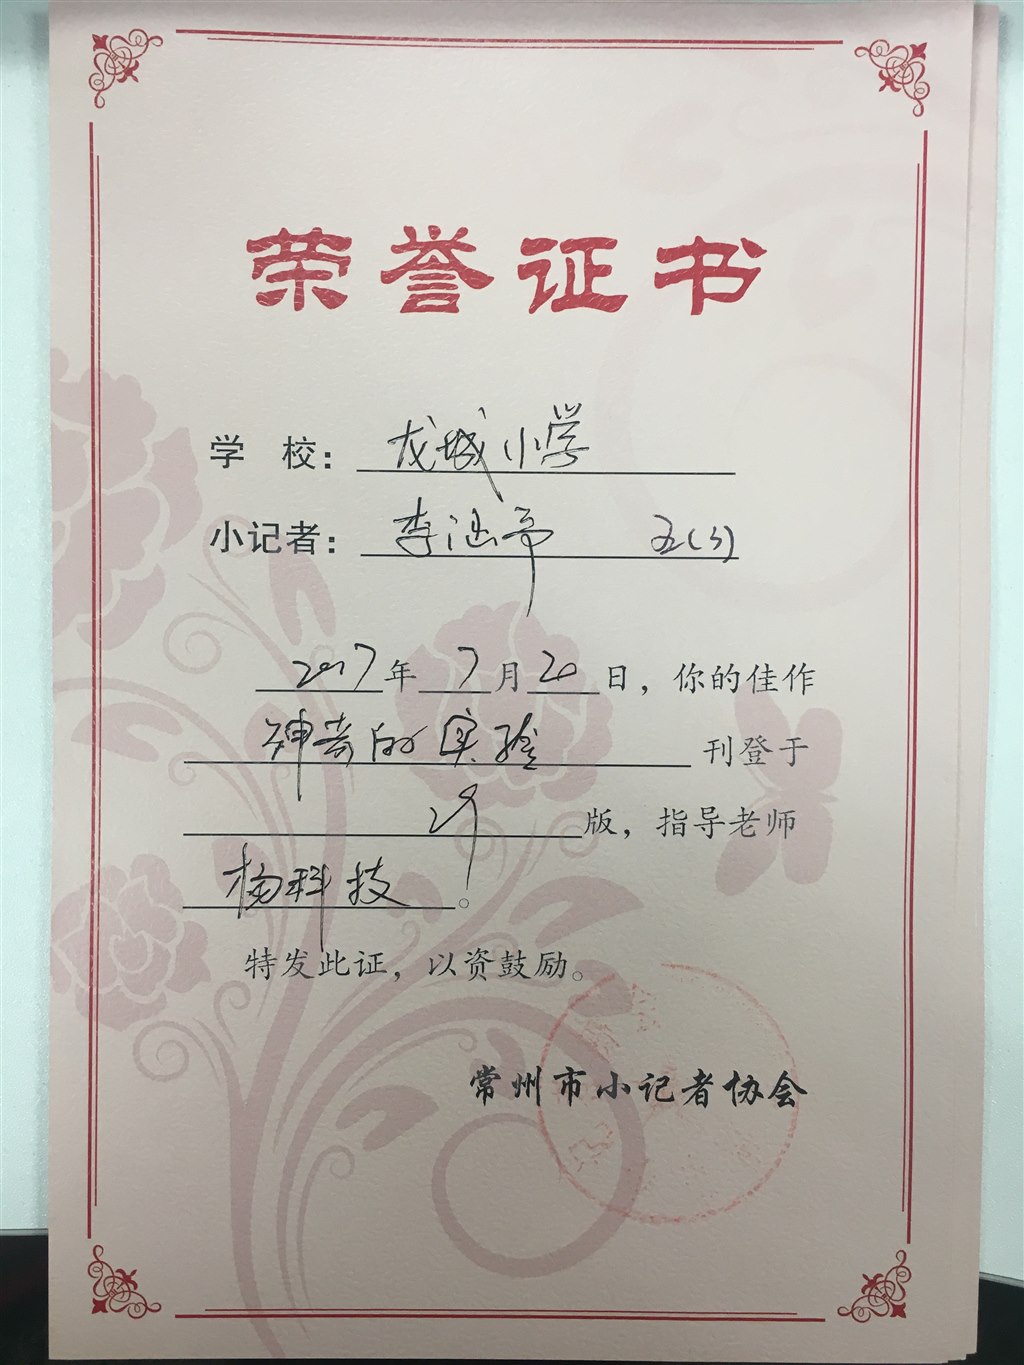 荣誉证书
学 校：龙城小学
小记者：李涵予 五(3)
2017年7月20日，你的佳作
神奇的实验 刊登于
版，指导老师
杨科技。
特发此证，以资鼓励。
常州市小记者协会